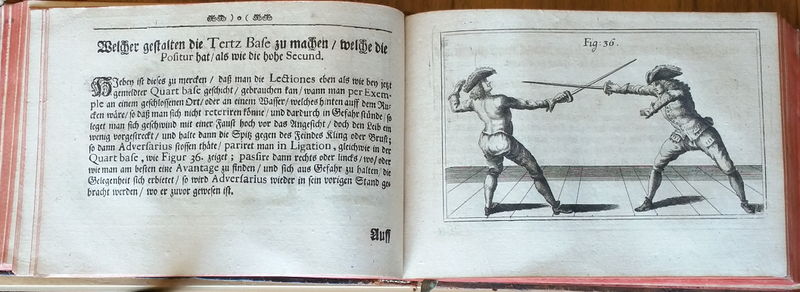 ) o (
Welcher gestalten die Tertz Base zu machen / welche die
Positur hat / als wie die hohe Secund.
HJebey ist dieses zu mercken / daß man die Lectiones eben als wie bey jetzt
gemeldter Quart base geschicht / gebrauchen kan / wann man per Exem-
ple an einem geschlossenen Ort / oder an einem Wasser / welches hinten auff dem Ru-
cken wäre / so daß man sich nicht reteriren könne / und dardurch in Gefahr stünde / so
leget man sich geschwind mit einer Faust hoch vor das Angesicht / doch den Leib ein
wenig vorgestreckt / und halte dann die Spitz gegen des Feindes Kling oder Brust;
so dann Adversarius stossen thäte / pariret man in Ligation, gleichwie in der
Quart base, wie Figur 36. zeiget; passire dann rechts oder lincks / wo / oder
wie man am besten eine Avantage zu finden / und sich aus Gefahr zu halten / die
Gelegenheit sich erbietet / so wird Adversarius wieder in sein vorigen Stand ge-
bracht werden / wo er zuvor gewesen ist.
Auff
Fig: 36.